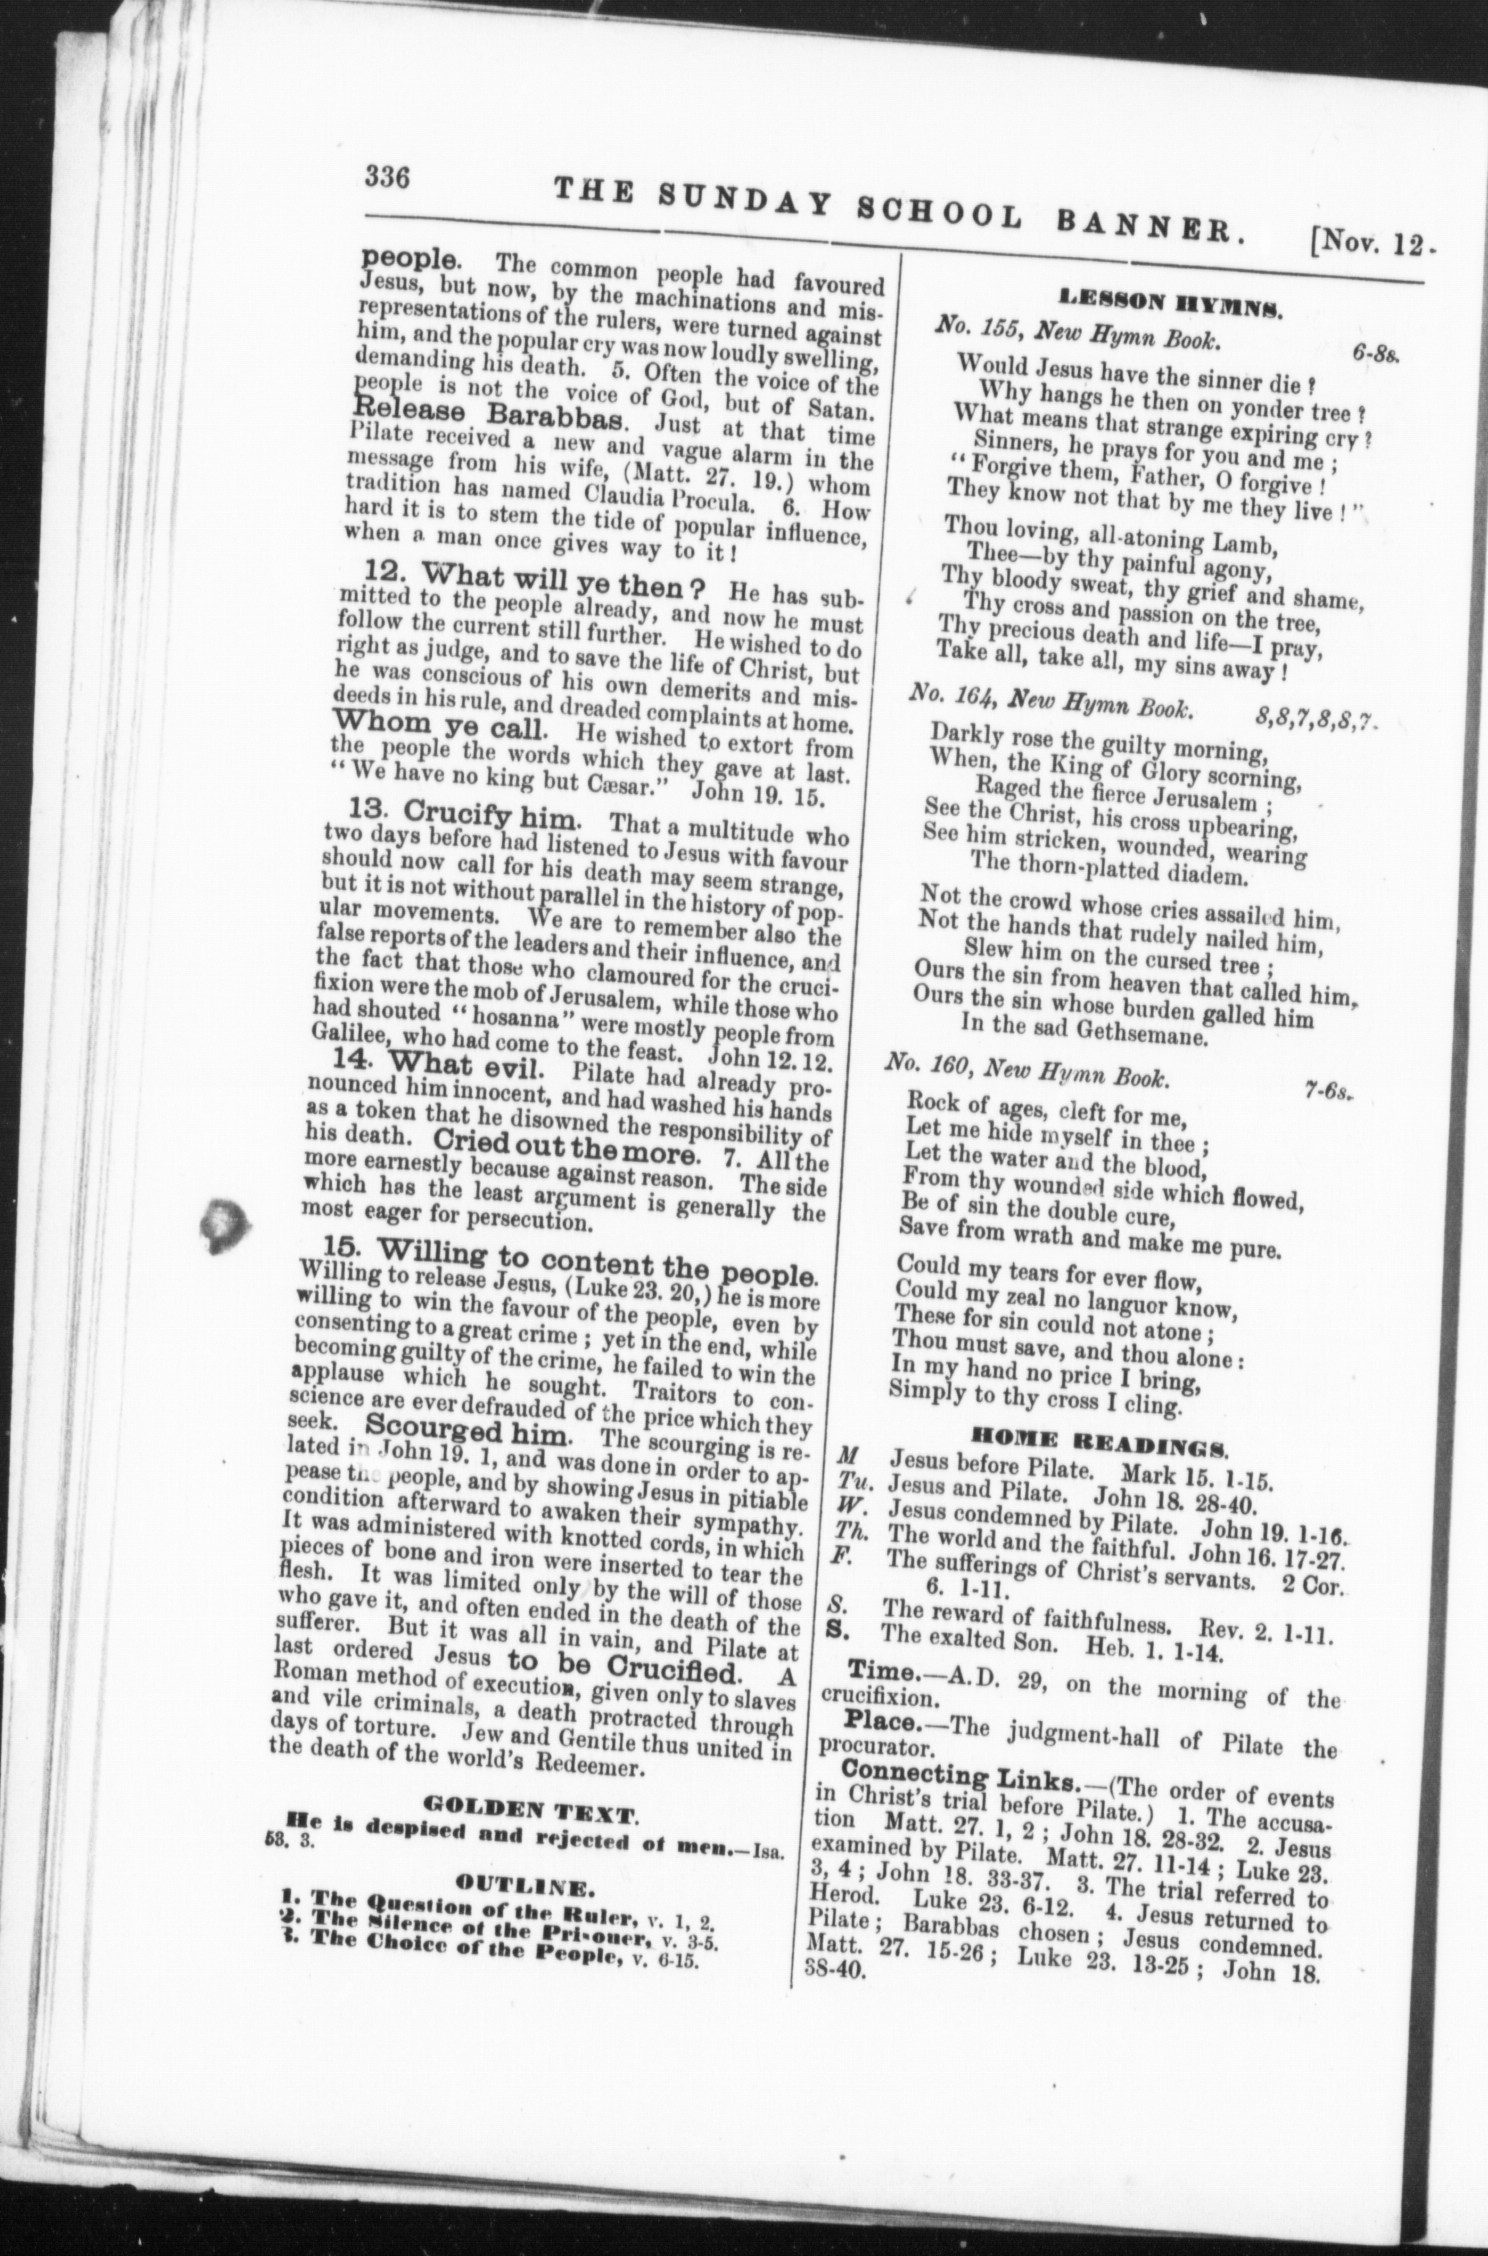 336
THE SUNDAY SCHOOL BANNER.
[Nov. 12.
people. The common people had favoured
Jesus, but now, by the machinations and mis-
representations of the rulers, were turned against
him, and the popular cry was now loudly swelling,
demanding his death. 5. Often the voice of the
people is not the voice of God, but of Satan.
Release Barabbas. Just at that time
Pilate received a new and vague alarm in the
message from his wife, (Matt. 27. 19.) whom
tradition has named Claudia Procula. 6. How
hard it is to stem the tide of popular influence,
when a man once gives way to it!
12. What will ye then? He has sub-
mitted to the people already, and now he must
follow the current still further. He wished to do
right as judge, and to save the life of Christ, but
he was conscious of his own demerits and mis-
deeds in his rule, and dreaded complaints at home.
Whom ye call. He wished to extort from
the people the words which they gave at last.
"We have no king but Cæsar." John 19. 15.
13. Crucify him. That a multitude who
two days before had listened to Jesus with favour
should now call for his death may seem strange,
but it is not without parallel in the history of pop-
ular movements. We are to remember also the
false reports of the leaders and their influence, and
the fact that those who clamoured for the cruci-
fixion were the mob of Jerusalem, while those who
had shouted "hosanna" were mostly people from
Galilee, who had come to the feast. John 12. 12.
14. What evil. Pilate had already pro-
nounced him innocent, and had washed his hands
as a token that he disowned the responsibility of
his death. Cried out the more. 7. All the
more earnestly because against reason. The side
which has the least argument is generally the
most eager for persecution.
15. Willing to content the people.
Willing to release Jesus, (Luke 23. 20,) he is more
willing to win the favour of the people, even by
consenting to a great crime; yet in the end, while
becoming guilty of the crime, he failed to win the
applause which he sought. Traitors to con-
science are ever defrauded of the price which they
seek. Scourged him. The scourging is re-
lated in John 19. 1, and was done in order to ap-
pease the people, and by showing Jesus in pitiable
condition afterward to awaken their sympathy.
It was administered with knotted cords, in which
pieces of bone and iron were inserted to tear the
flesh. It was limited only by the will of those
who gave it, and often ended in the death of the
sufferer. But it was all in vain, and Pilate at
last ordered Jesus to be Crucified. A
Roman method of execution, given only to slaves
and vile criminals, a death protracted through
days of torture. Jew and Gentile thus united in
the death of the world's Redeemer.
GOLDEN TEXT.
He is despised and rejected of men.—Isa.
53. 3.
OUTLINE.
1. The Question of the Ruler, v. 1, 2.
2. The Silence of the Prisoner, v. 3-5.
3. The Choice of the People, v. 6-15.
LESSON HYMNS.
No. 155, New Hymn Book. 6-8s.
Would Jesus have the sinner die?
Why hangs he then on yonder tree?
What means that strange expiring cry?
Sinners, he prays for you and me;
"Forgive them, Father, O forgive!
They know not that by me they live!"
Thou loving, all-atoning Lamb,
Thee—by thy painful agony,
Thy bloody sweat, thy grief and shame,
Thy cross and passion on the tree,
Thy precious death and life—I pray,
Take all, take all, my sins away!
No. 164, New Hymn Book. 8,8,7,8,8,7.
Darkly rose the guilty morning,
When, the King of Glory scorning,
Raged the fierce Jerusalem;
See the Christ, his cross upbearing,
See him stricken, wounded, wearing
The thorn-platted diadem.
Not the crowd whose cries assailed him,
Not the hands that rudely nailed him,
Slew him on the cursed tree;
Ours the sin from heaven that called him,
Ours the sin whose burden galled him
In the sad Gethsemane.
No. 160, New Hymn Book. 7-6s.
Rock of ages, cleft for me,
Let me hide myself in thee;
Let the water and the blood,
From thy wounded side which flowed,
Be of sin the double cure,
Save from wrath and make me pure.
Could my tears for ever flow,
Could my zeal no languor know,
These for sin could not atone;
Thou must save, and thou alone:
In my hand no price I bring,
Simply to thy cross I cling.
HOME READINGS.
M Jesus before Pilate. Mark 15. 1-15.
Tu. Jesus and Pilate. John 18. 28-40.
W. Jesus condemned by Pilate. John 19. 1-16.
Th. The world and the faithful. John 16. 17-27.
F. The sufferings of Christ's servants. 2 Cor.
6. 1-11.
S. The reward of faithfulness. Rev. 2. 1-11.
S. The exalted Son. Heb. 1. 1-14.
Time.—A.D. 29, on the morning of the
crucifixion.
Place.—The judgment-hall of Pilate the
procurator.
Connecting Links.—(The order of events
in Christ's trial before Pilate.) 1. The accusa-
tion Matt. 27. 1, 2; John 18. 28-32. 2. Jesus
examined by Pilate. Matt. 27. 11-14; Luke 23.
3, 4; John 18. 33-37. 3. The trial referred to
Herod. Luke 23. 6-12. 4. Jesus returned to
Pilate; Barabbas chosen; Jesus condemned.
Matt. 27. 15-26; Luke 23. 13-25; John 18.
38-40.